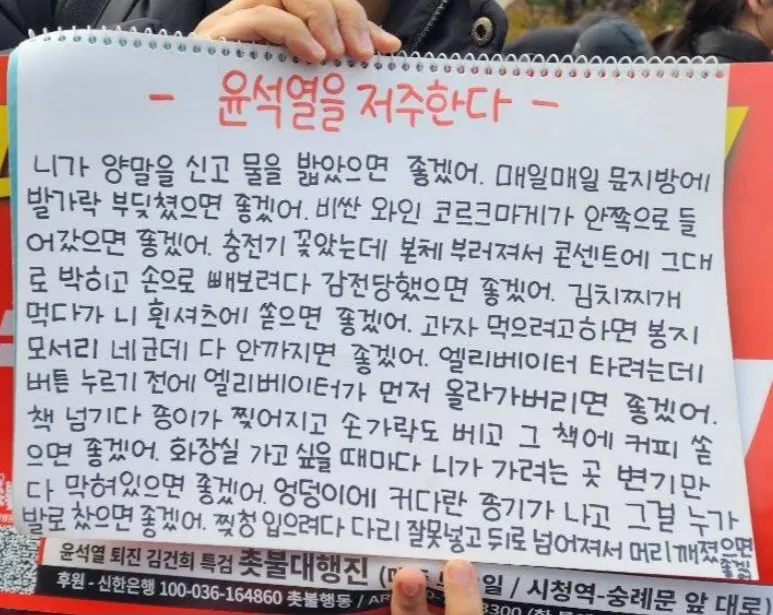 - 윤석열을 저주한다 -
니가 양말을 신고 물을 밟았으면 좋겠어. 매일매일 뮤지방에
발가락 부딪쳤으면 좋겠어. 비싼 와인 코르크마게가 안쪽으로 들
어갔으면 좋겠어. 충전기 꽂았는데 본체 부러져서 콘센트에 그대
로 박히고 손으로 빼보려다 감전당했으면 좋겠어. 김치찌개
먹다가 니 흰셔츠에 쏟으면 좋겠어. 과자 먹으려고하면 봉지
모서리 네군데 다 안까지면 좋겠어. 엘리베이터 타려는데
버튼 누르기 전에 엘리베이터가 먼저 올라가버리면 좋겠어.
책 넘기다 종이가 찢어지고 손가락도 베고 그 책에 커피 쏟
으면 좋겠어. 화장실 가고 싶을 때마다 니가 가려는 곳 변기만
다 막혀있으면 좋겠어. 엉덩이에 커다란 종기가 나고 그걸 누가
발로 찼으면 좋겠어. 찢청 입으려다 다리 잘못넣고 뒤로 넘어져서 머리깨졌으면
좋겠어
윤석열 퇴진 김건희 특검 촛불대행진 (매주 일 / 시청역-숭례문 앞 대로)
후원 - 신한은행 100-036-164860 촛불행동 / AR 3300